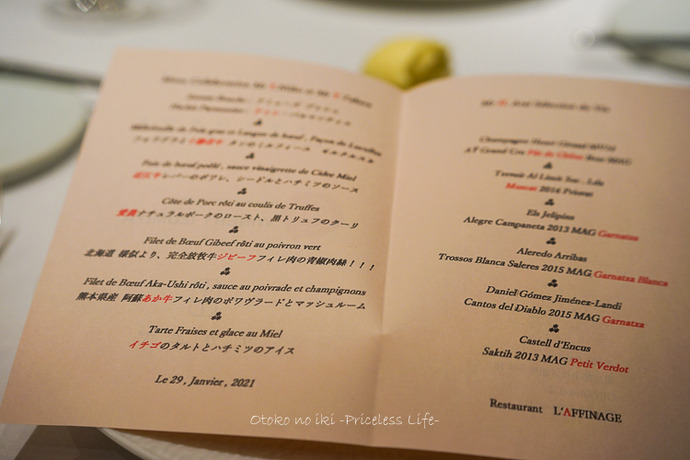 Foie de bœuf poêlé , sauce vinaigrette de Cidre Miel
近江牛レバーのポワレ、シードルとハチミツのソース
Côte de Porc rôti au coulis de Truffes
ナチュラルポークのロースト、黒トリュフのクーリ
Filet de Bœuf Gibeef rôti au poivron vert
北海道 様似より、完全放牧牛ジビーフフィレ肉の青椒肉絲！！！
Filet de Bœuf Aka-Ushi rôti , sauce au poivrade et champignons
熊本県産 阿蘇あか牛フィレ肉のポワヴラードとマッシュルーム
Tarte Fraises et glace au Miel
イチゴのタルトとハチミツのアイス
Le 29 , Janvier , 2021
Champagne Henri Giraud
AY Grand Cru
Terroir Al Limit Soc . Lda
Muscat 2016 Priorat
Els Jelipins
Alegre Campaneta 2013 MAG Garnatxa
Aleredo Arribas
Trossos Blanca Saleres 2015 MAG Garnatxa Blanca
Daniel Gómez Jiménez-Landi
Cantos del Diablo 2015 MAG Garnatxa
Castell d'Encus
Saktih 2013 MAG Petit Verdot
Restaurant L'AFFINAGE
Otoko no iki -Priceless Life-